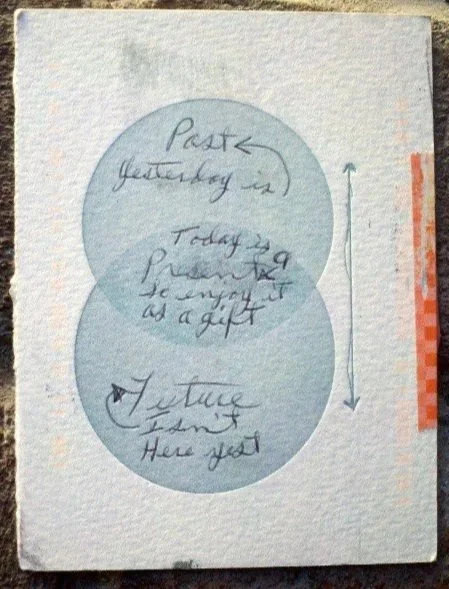 Past
Yesterday is
Today is a
Present
so enjoy it
as a gift
Future
Isn't
Here yest